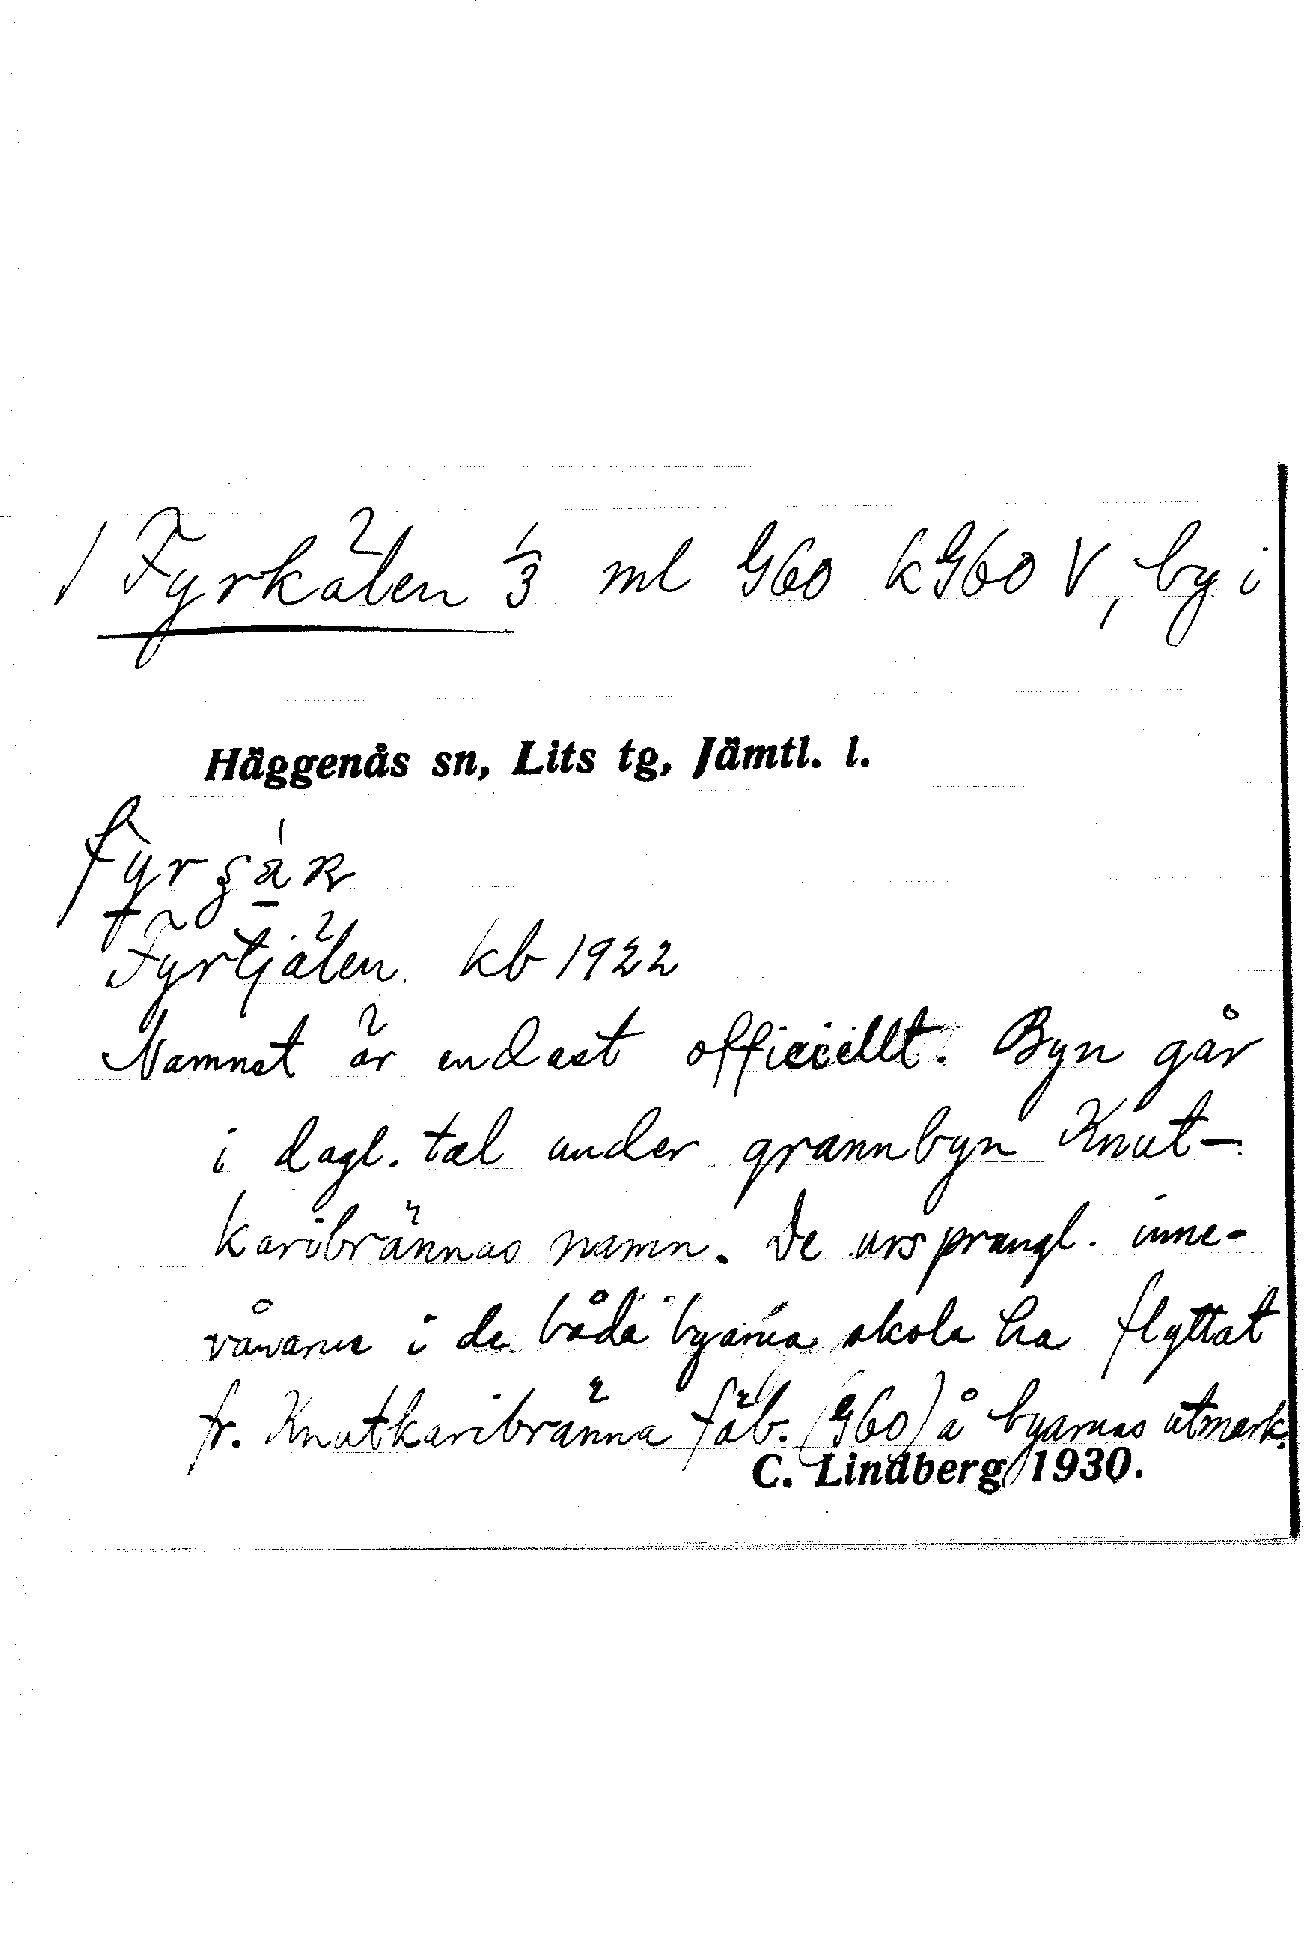 / Fyrkälen 1/3 ml G60 kG60 V, by i
Häggenås sn, Lits tg, Jämtl. l.
Fyrtjälen kb 1922
Namnet är endast officiellt. Byn går
i dagl. tal under grannbyn Knut-
karibrännas namn. De ursprungl. inne-
vånarne i de båda byarna skola ha flyttat
fr. Knutkaribränna fäb. (G60) å byarnas utmark.
C. Lindberg 1930.